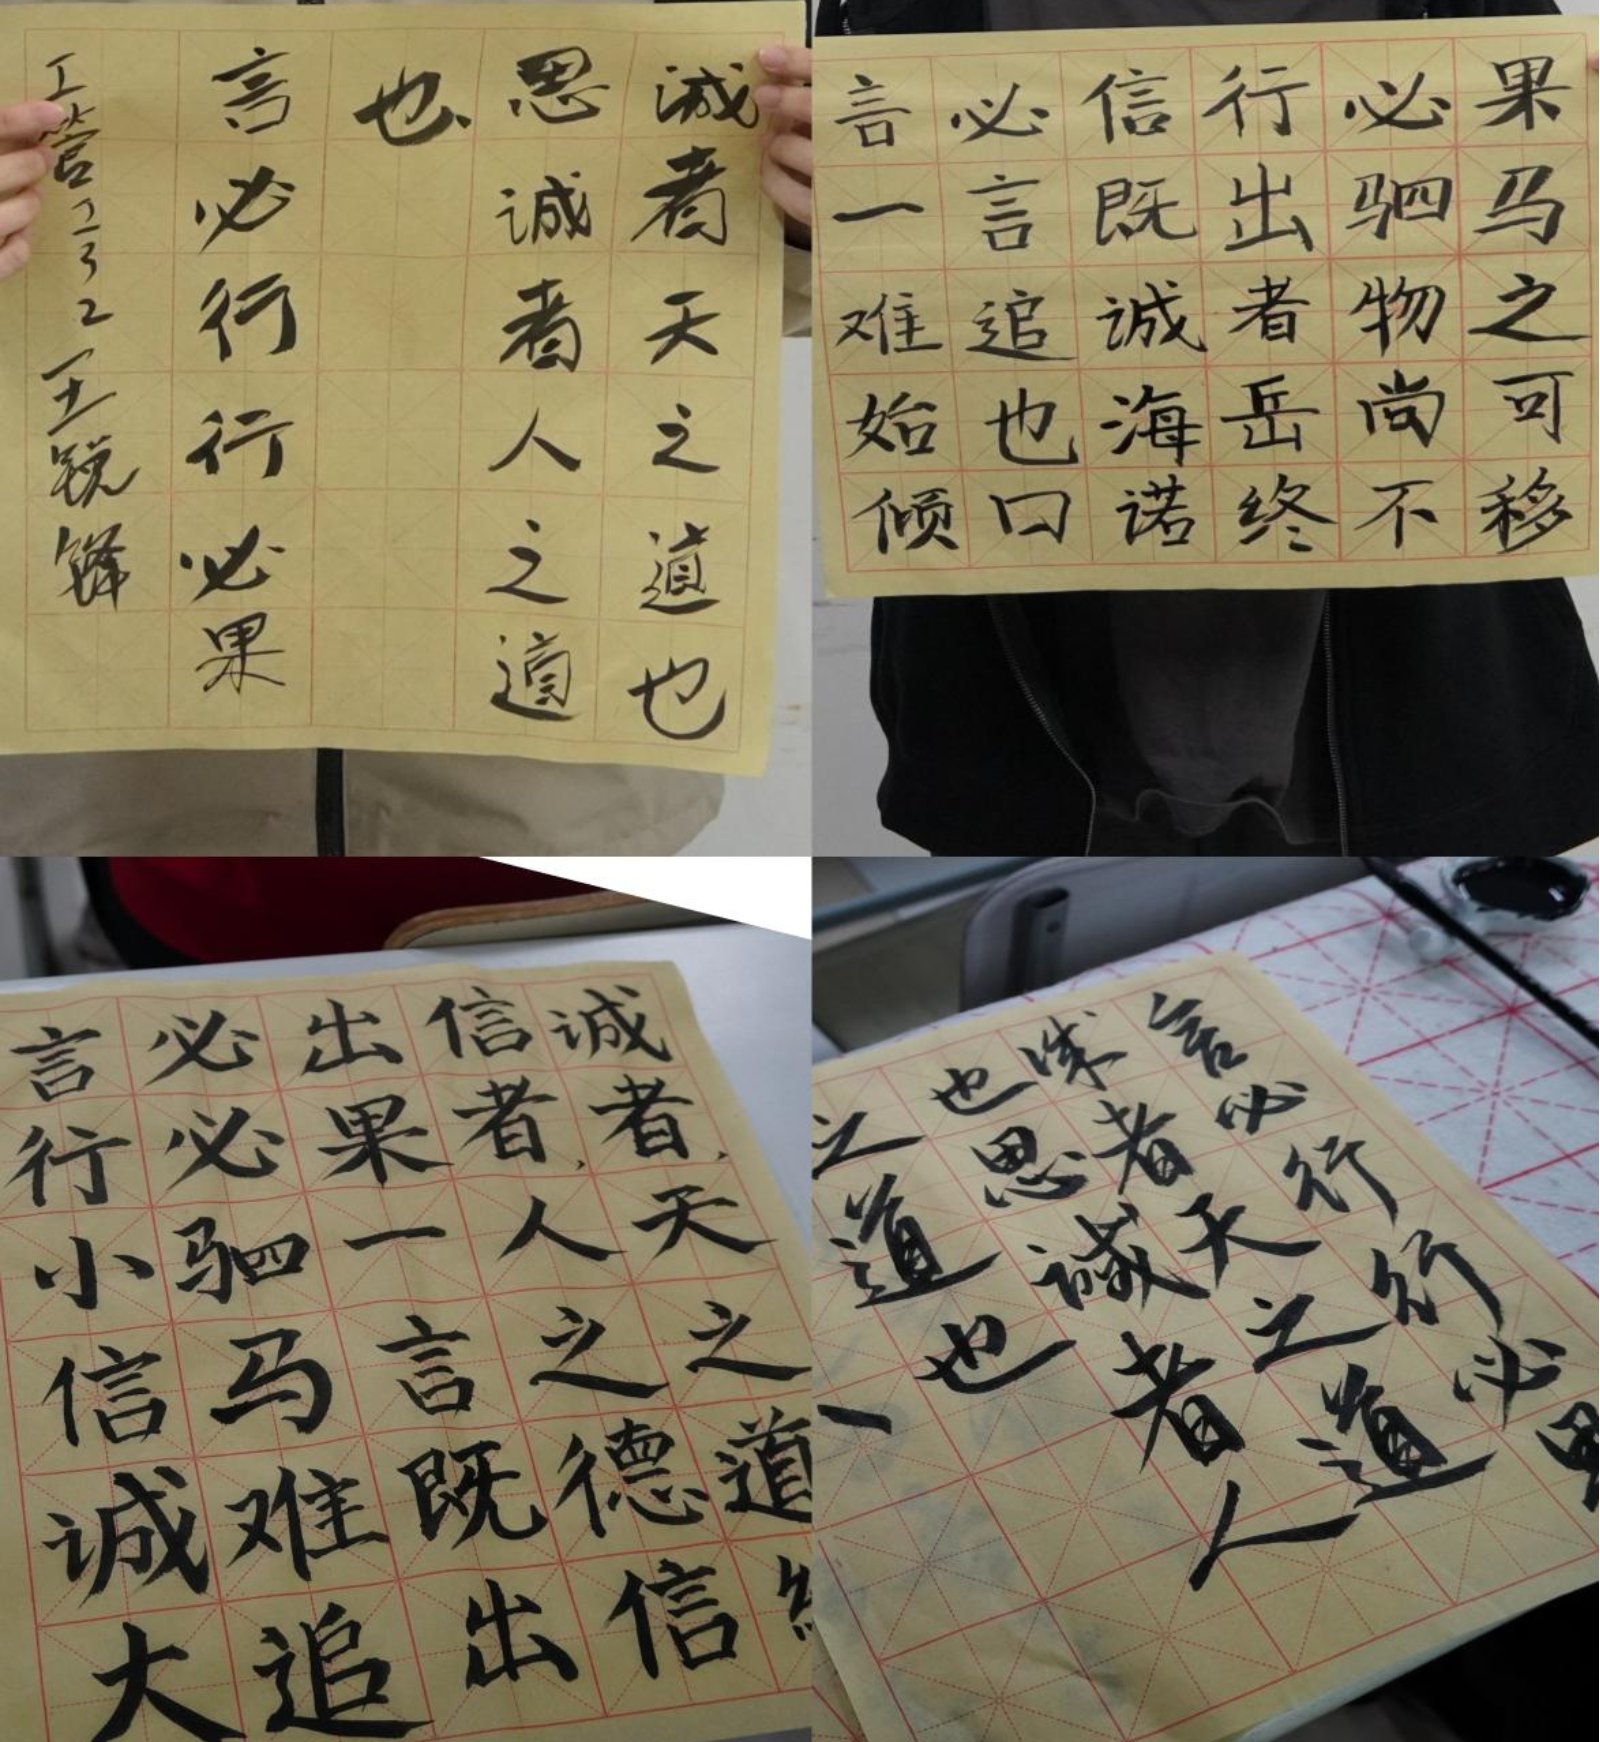 诚者天之道也
思诚者人之道
也
言必行行必果
工管232王锐锋
言必信行必果
一言既出驷马
难追诚者物之
始也海岳尚可
倾口诺终不移
诚者,天之道
信者,人之德信
出果一言既出
必必驷马难追
言行小信诚大
言必行行必果
诚者天之道
也思诚者人
之道也
一